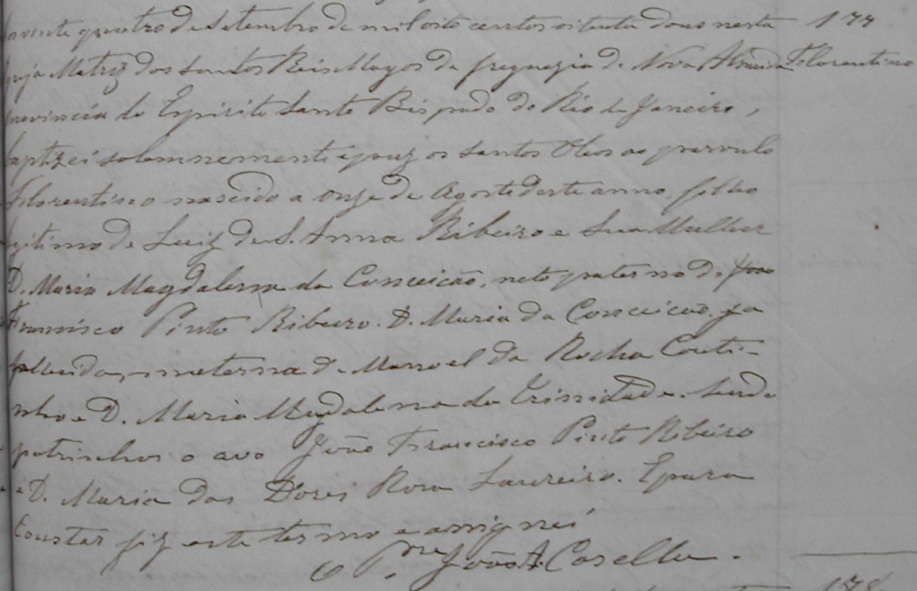 vinte quatro de Setembro de mil oito centos oitenta dous nesta 174
Matriz dos Santos Reis Magos da freguezia de Nova Almeida Florentino
provincia do Espirito Santo Bispado do Rio de Janeiro,
baptizei solemnemente e puz os Santos Oleos ao parvulo
Florentino nascido a onze de Agosto deste anno, filho
legitimo de Luiz de S. Anna Ribeiro e Sua Mulher
D. Maria Magdalena da Conceição, neto paterno de João
Francisco Pinto Ribeiro. D. Maria da Conceição, ja
fallecida, materna d. Manoel da Rocha Couti-
nho e D. Maria Magdalena da Trinidade. Sendo
patrinhos o avo João Francisco Pinto Ribeiro
e D. Maria das Dores Loureiro. E para
Constar fiz este termo e assignei
O Pre João A. Casella.